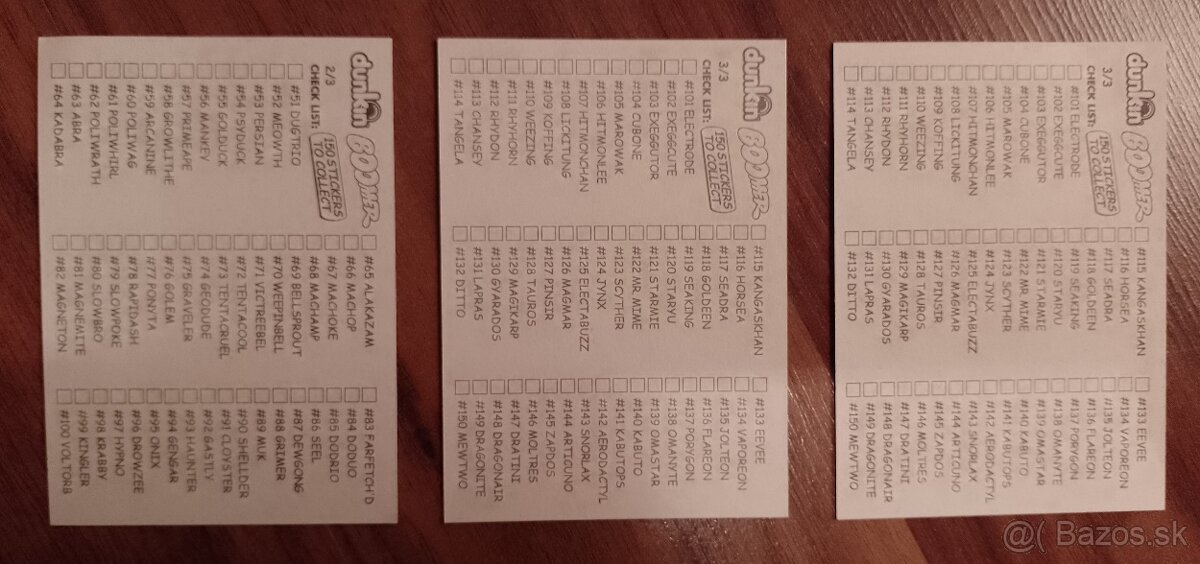 dunkin BOOMER
2/3
CHECK LIST:
150 STICKERS
TO COLLECT
#51 DUGTRIO
#52 MEOWTH
#53 PERSIAN
#54 PSYDUCK
#55 GOLDUCK
#56 MANKEY
#57 PRIMEAPE
#58 GROWLITHE
#59 ARCANINE
#60 POLIWAG
#61 POLIWHIRL
#62 POLIWRATH
#63 ABRA
#64 KADABRA
#65 ALAKAZAM
#66 MACHOP
#67 MACHOKE
#68 MACHAMP
#69 BELLSPROUT
#70 WEEPINBELL
#71 VICTREEBEL
#72 TENTACOOL
#73 TENTACRUEL
#74 GEODUDE
#75 GRAVELER
#76 GOLEM
#77 PONYTA
#78 RAPIDASH
#79 SLOWPOKE
#80 SLOWBRO
#81 MAGNEMITE
#82 MAGNETON
#83 FARFETCH'D
#84 DODUO
#85 DODRIO
#86 SEEL
#87 DEWGONG
#88 GRIMER
#89 MUK
#90 SHELLDER
#91 CLOYSTER
#92 GASTLY
#93 HAUNTER
#94 GENGAR
#95 ONIX
#96 DROWZEE
#97 HYPNO
#98 KRABBY
#99 KINGLER
#100 VOLTORB
dunkin BOOMER
3/3
CHECK LIST:
150 STICKERS
TO COLLECT
#101 ELECTRODE
#102 EXEGGCUTE
#103 EXEGGUTOR
#104 CUBONE
#105 MAROWAK
#106 HITMONLEE
#107 HITMONCHAN
#108 LICKITUNG
#109 KOFFING
#110 WEEZING
#111 RHYHORN
#112 RHYDON
#113 CHANSEY
#114 TANGELA
#115 KANGASKHAN
#116 HORSEA
#117 SEADRA
#118 GOLDEEN
#119 SEAKING
#120 STARYU
#121 STARMIE
#122 MR. MIME
#123 SCYTHER
#124 JYNX
#125 ELECTABUZZ
#126 MAGMAR
#127 PINSIR
#128 TAUROS
#129 MAGIKARP
#130 GYARADOS
#131 LAPRAS
#132 DITTO
#133 EEVEE
#134 VAPOREON
#135 JOLTEON
#136 FLAREON
#137 PORYGON
#138 OMANYTE
#139 OMASTAR
#140 KABUTO
#141 KABUTOPS
#142 AERODACTYL
#143 SNORLAX
#144 ARTICUNO
#145 ZAPDOS
#146 MOLTRES
#147 DRATINI
#148 DRAGONAIR
#149 DRAGONITE
#150 MEWTWO
dunkin BOOMER
3/3
CHECK LIST:
150 STICKERS
TO COLLECT
#101 ELECTRODE
#102 EXEGGCUTE
#103 EXEGGUTOR
#104 CUBONE
#105 MAROWAK
#106 HITMONLEE
#107 HITMONCHAN
#108 LICKITUNG
#109 KOFFING
#110 WEEZING
#111 RHYHORN
#112 RHYDON
#113 CHANSEY
#114 TANGELA
#115 KANGASKHAN
#116 HORSEA
#117 SEADRA
#118 GOLDEEN
#119 SEAKING
#120 STARYU
#121 STARMIE
#122 MR. MIME
#123 SCYTHER
#124 JYNX
#125 ELECTABUZZ
#126 MAGMAR
#127 PINSIR
#128 TAUROS
#129 MAGIKARP
#130 GYARADOS
#131 LAPRAS
#132 DITTO
#133 EEVEE
#134 VAPOREON
#135 JOLTEON
#136 FLAREON
#137 PORYGON
#138 OMANYTE
#139 OMASTAR
#140 KABUTO
#141 KABUTOPS
#142 AERODACTYL
#143 SNORLAX
#144 ARTICUNO
#145 ZAPDOS
#146 MOLTRES
#147 DRATINI
#148 DRAGONAIR
#149 DRAGONITE
#150 MEWTWO
Bazos.sk